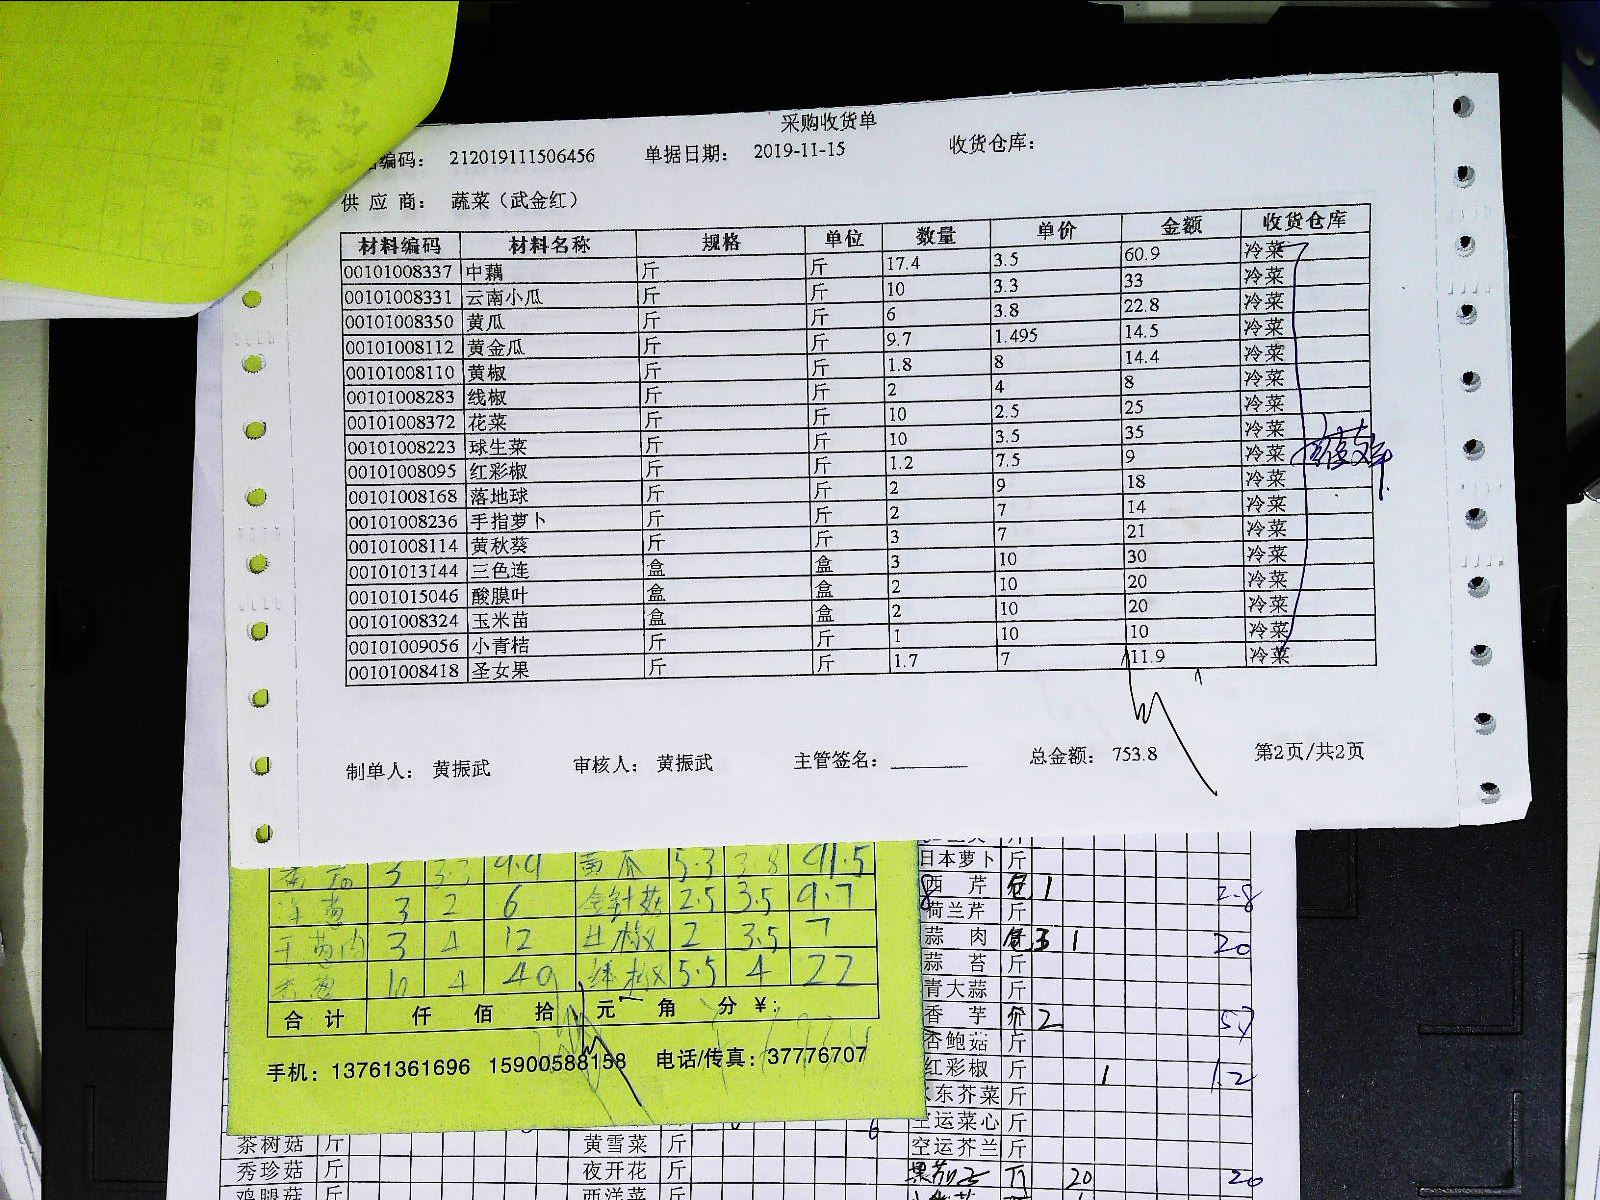 采购收货单
编码： 212019111506456 单据日期： 2019-11-15 收货仓库：
供 应 商： 蔬菜（武金红）
材料编码 材料名称 规格 单位 数量 单价 金额 收货仓库
00101008337 中藕 斤 斤 17.4 3.5 60.9 冷菜
00101008331 云南小瓜 斤 斤 10 3.3 33 冷菜
00101008350 黄瓜 斤 斤 6 3.8 22.8 冷菜
00101008112 黄金瓜 斤 斤 9.7 1.495 14.5 冷菜
00101008110 黄椒 斤 斤 1.8 8 14.4 冷菜
00101008283 线椒 斤 斤 2 4 8 冷菜
00101008372 花菜 斤 斤 10 2.5 25 冷菜
00101008223 球生菜 斤 斤 10 3.5 35 冷菜
00101008095 红彩椒 斤 斤 1.2 7.5 9 冷菜
00101008168 落地球 斤 斤 2 9 18 冷菜
00101008236 手指萝卜 斤 斤 2 7 14 冷菜
00101008114 黄秋葵 斤 斤 3 7 21 冷菜
00101013144 三色连 盒 盒 3 10 30 冷菜
00101015046 酸膜叶 盒 盒 2 10 20 冷菜
00101008324 玉米苗 盒 盒 2 10 20 冷菜
00101009056 小青桔 斤 斤 1 10 10 冷菜
00101008418 圣女果 斤 斤 1.7 7 11.9 冷菜
制单人： 黄振武 审核人： 黄振武 主管签名： 总金额： 753.8 第2页/共2页
3 3.3 9.9 黄瓜 5.3 3.8
洋葱 3 2 6 金针菇 2.5 3.5 9.7
干葱肉 3 4 12 3.5 7
10 4 40 线椒 5.5 4 22
合 计 仟 佰 拾 元 角 分 ￥：
手机：13761361696 15900588158 电话/传真：37776707
日本萝卜 斤
西 芹 1 2.8
荷兰芹 斤
蒜 肉 3 1 20
蒜 苔 斤
青大蒜 斤
香 芋 斤 2 57
杏鲍菇 斤
红彩椒 斤 1 1.2
水东芥菜 斤
空运菜心 斤
空运芥兰 斤
20 20
茶树菇 斤 黄雪菜 斤 6
秀珍菇 斤 夜开花 斤
鸡腿菇 斤 西洋菜 斤